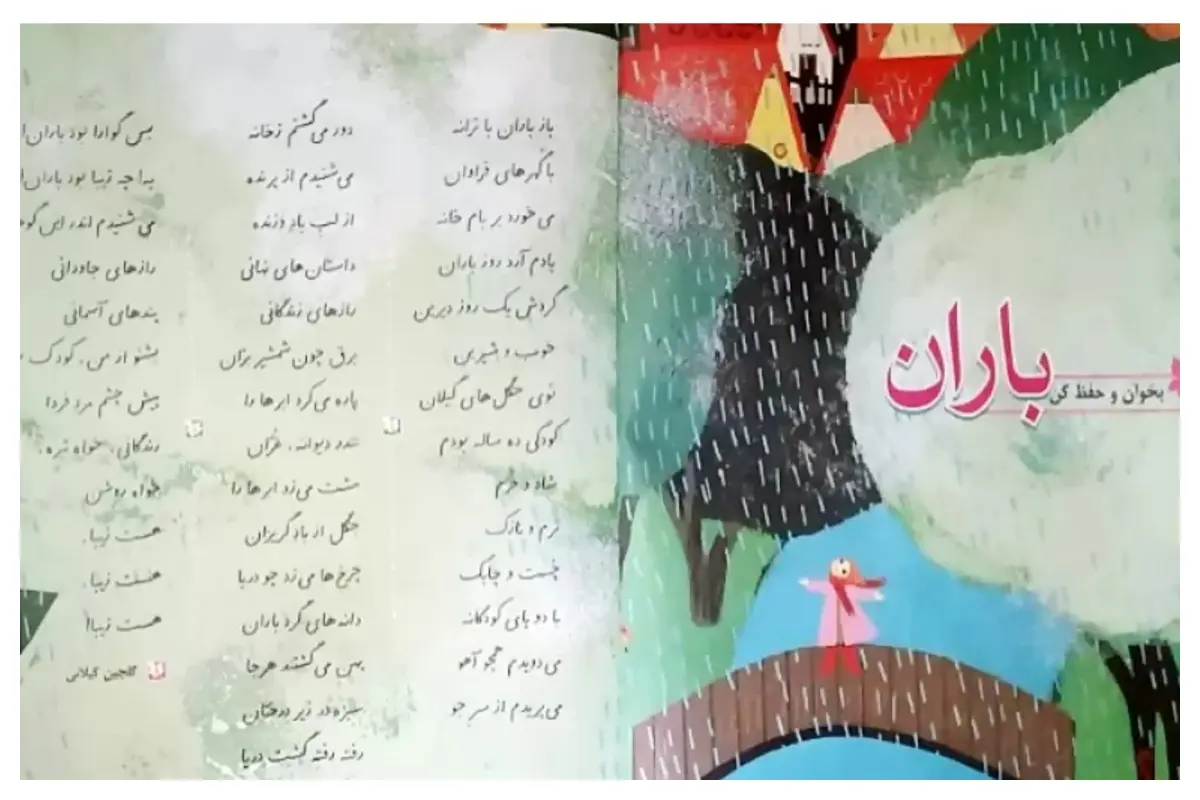 باران
بخوان و حفظ کن
باز باران با ترانه
با گهرهای فراوان
می خورد بر بام خانه
یادم آرد روز باران
گردش یک روز دیرین
خوب و شیرین
توی جنگل های گیلان
کودکی ده ساله بودم
شاد و خرم
نرم و نازک
چست و چابک
با دو پای کودکانه
می دویدم همچو آهو
می پریدم از سر جو
دور می گشتم ز خانه
می شنیدم از پرنده
از لب باد وزنده
داستان های نهانی
رازهای زندگانی
برق چون شمشیر بران
پاره می کرد ابرها را
تندر دیوانه، غران
مشت می زد ابرها را
جنگل از باد گریزان
چرخ ها می زد چو دریا
دانه های گرد باران
پهن می گشتند هر جا
سبزه در زیر درختان
رفته رفته گشت دریا
بس گوارا بود باران!
به! چه زیبا بود باران!
می شنیدم اندر این
رازهای جاودانی
پندهای آسمانی
بشنو از من، کودک
پیش چشم مرد فردا
زندگانی، خواه تیره،
خواه روشن
هست زیبا،
هست زیبا،
هست زیبا!
گلچین گیلانی